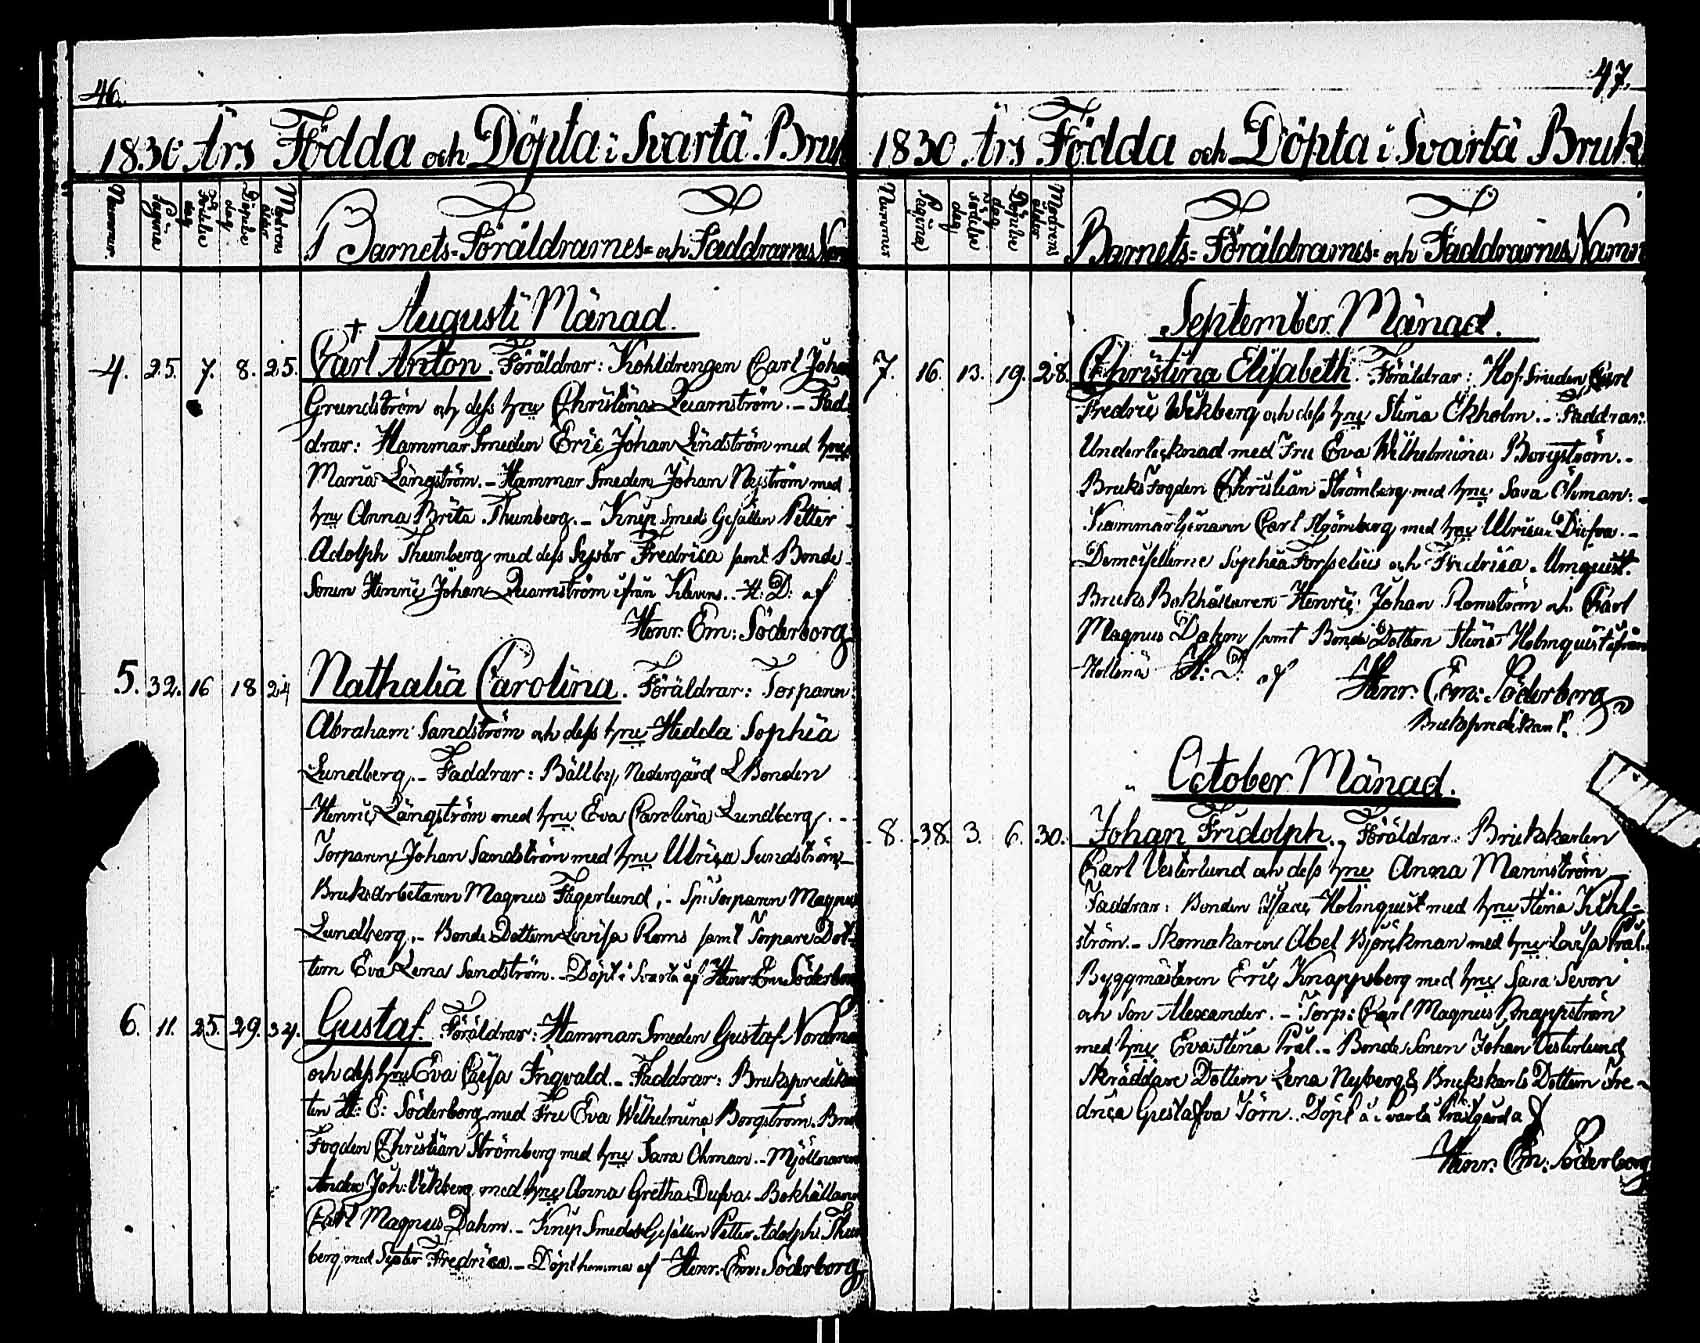 46.
1830 Års Födda och Döpta i Svartå Bruk
Nummer
Pagina
Födelse dag
Döpelse dag
Modrens ålder
Barnets- Föräldrarnes- och Faddrarnes
Augusti Månad.
4. 25. 7. 8. 25. Carl Anton. Föräldrar: Kohldrengen Carl Johan
Grundström och dess hru Christina Quarnström. - Fad-
drar: Hammar Smeden Eric Johan Lindström med hru
Maria Långström. - Hammar Smeden Johan Nyström med
hru Anna Brita Thunberg. - Knip Smeds Gesällen Petter
Adolph Thunberg med dess Syster Fredrica samt Bonde
Sonen Henric Johan Quarnström ifrån H: D: af
Henr: Em: Söderborg
5. 32. 16 18 24 Nathalia Carolina. Föräldrar: Torparen
Abraham Sandström och dess hru Hedda Sophia
Lundberg. - Faddrar: Bällby Nedergård Bonden
Henric Långström med hru Eva Carolina Lundberg. -
Torparen Johan Sandström med hru Ulrica Sundström
Bruksarbetaren Magnus Fagerlund, - Sp: Torparen Magnus
Lundberg. - Bonde Dottern Lovisa Roms samt Torpare Dot-
tern Eva Lena Sandström. - Döpt i Svartå af Henr: Em: Söderborg
6. 11. 25. 29. 34. Gustaf. Föräldrar: Hammar Smeden Gustaf
och dess hru Eva Cajsa Ingvald. - Faddrar: Brukspredikan
ten H: E: Söderborg med Fru Eva Wilhelmina Borgström. Bruks
Fogden Christian Strömberg med hru Sara Öhman. - Mjölnaren
Anders Joh: Vikberg med hru Anna Gretha Dufva. Bokhållaren
Carl Magnus Dahm. - Knip Smeds Gesällen Petter Adolph Thun
berg med Syster Fredrica. - Döpt hemma af Henr: Em: Söderborg
47.
1830 Års Födda och Döpta i Svartå Bruk
Nummer
Pagina
Födelse dag
Döpelse dag
Modrens ålder
Barnets- Föräldrarnes- och Faddrarnes Namn
September Månad.
7. 16. 13. 19. 28. Christina Elisabeth. Föräldrar: Hof-Smeden Carl
Fredric Wikberg och dess hru Stina Ekholm. - Faddrar:
Undertecknad med Fru Eva Wilhelmina Borgström. -
Bruks Fogden Christian Strömberg med hru Sara Öhman. -
Carl med hru Ulrica Dufva. -
Demoisellerne Sophia och Fredrica Umquist.
Bruks Bokhållaren Henric Johan Romström och Carl
Magnus Dahm samt Bonde Dottern Stina Holmquist ifrån
H: D: af Henr: Em: Söderborg
Brukspredikant.
October Månad.
8. 38. 3. 6. 30. Johan Fridolph. Föräldrar: Brukskarlen
Carl Vesterlund och dess hru Anna Mannström
Faddrar: Bonden Isaac Holmquist med hru Stina Kihl-
ström. - Skomakaren Abel Björkman med hru Lovisa Präl.
Byggmästeren Eric Knappsberg med hru Sara Sevon
och Son Alexander. - Torp: Carl Magnus Knappström
med hru Eva Stina Präl. - Bonde Sonen Johan Vesterlund
Skräddare Dottern Lena Nyberg & Brukskarls Dottern Fre-
drica Gustafva Törn. Döpt å Svartå Prästgård af
Henr: Em: Söderborg